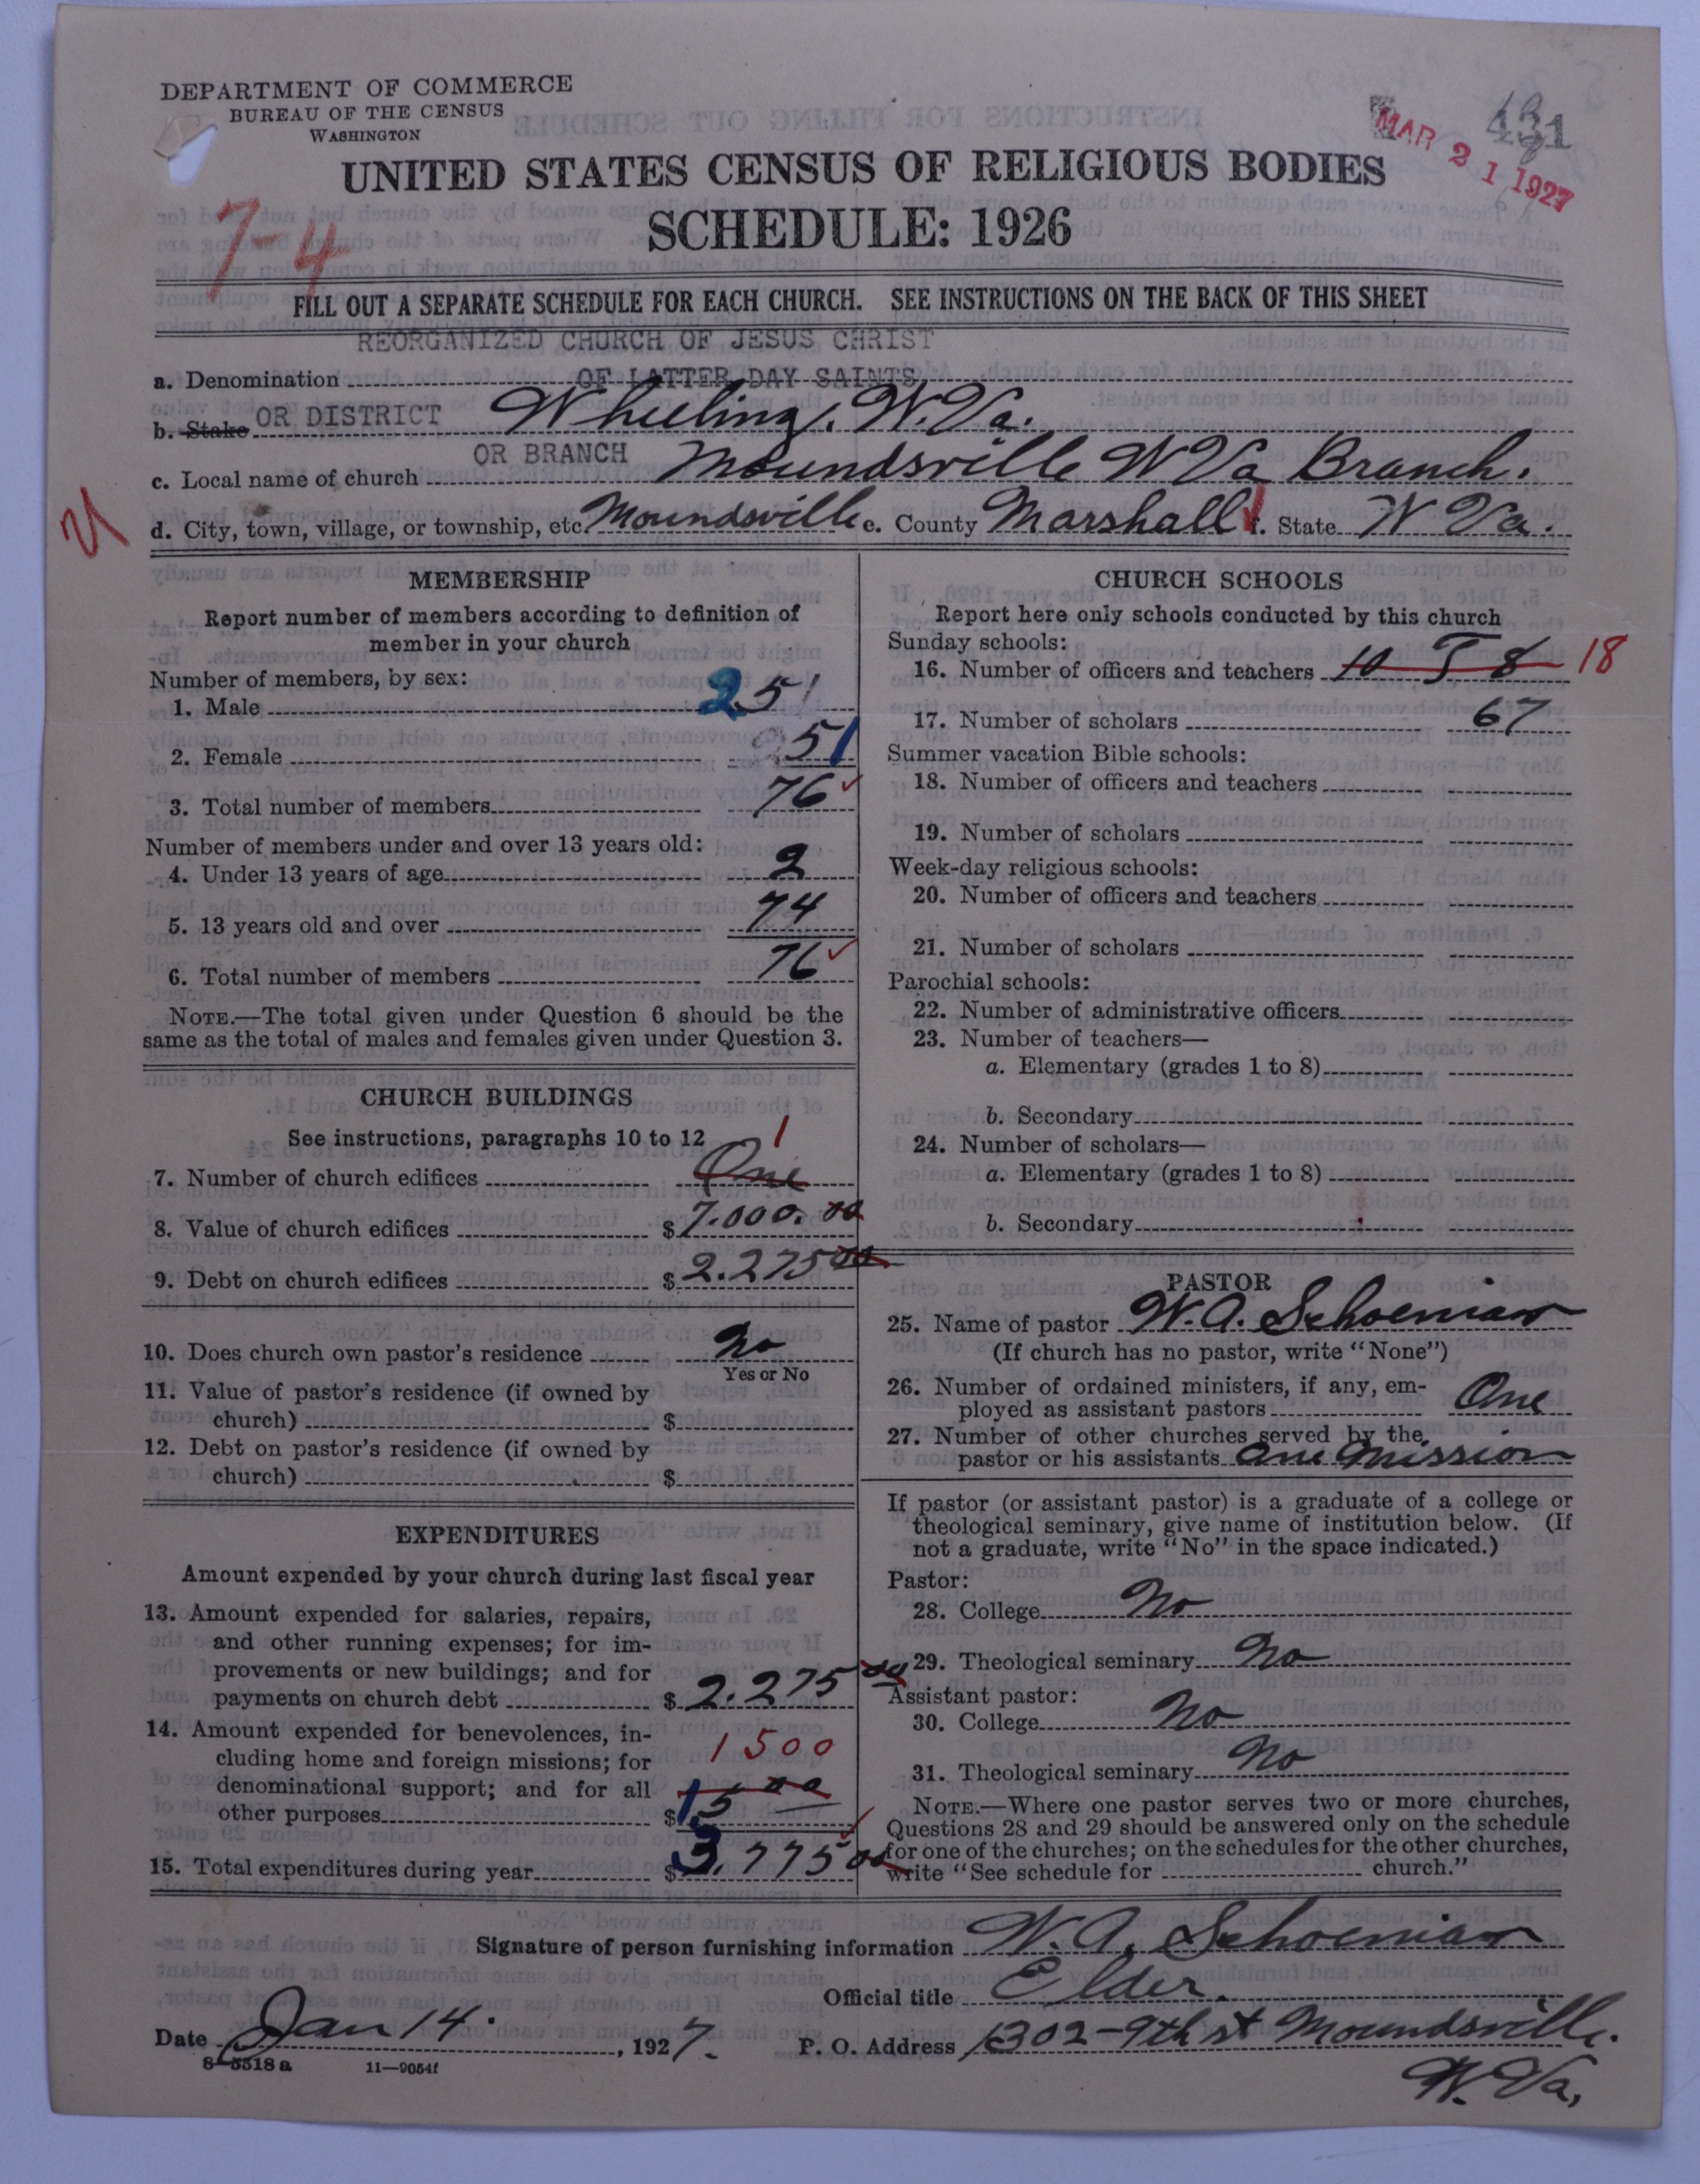 DEPARTMENT OF COMMERCE
BUREAU OF THE CENSUS
WASHINGTON
431
MAR 21 1927
UNITED STATES CENSUS OF RELIGIOUS BODIES
SCHEDULE: 1926
7-4
FILL OUT A SEPARATE SCHEDULE FOR EACH CHURCH. SEE INSTRUCTIONS ON THE BACK OF THIS SHEET
REORGANIZED CHURCH OF JESUS CHRIST
a. Denomination OF LATTER DAY SAINTS
b. Stake OR DISTRICT Wheeling, W. Va.
OR BRANCH
c. Local name of church Moundsville W Va Branch.
d. City, town, village, or township, etc. Moundsville e. County Marshall f. State W Va.
MEMBERSHIP
Report number of members according to definition of
member in your church
Number of members, by sex:
1. Male 25
2. Female 51
3. Total number of members 76
Number of members under and over 13 years old:
4. Under 13 years of age 2
5. 13 years old and over 74
6. Total number of members 76
NOTE.—The total given under Question 6 should be the
same as the total of males and females given under Question 3.
CHURCH BUILDINGS
See instructions, paragraphs 10 to 12
1
7. Number of church edifices One
8. Value of church edifices $ 7.000. 00
9. Debt on church edifices $ 2.275 00
10. Does church own pastor's residence No
Yes or No
11. Value of pastor's residence (if owned by
church) $
12. Debt on pastor's residence (if owned by
church) $
EXPENDITURES
Amount expended by your church during last fiscal year
13. Amount expended for salaries, repairs,
and other running expenses; for im-
provements or new buildings; and for
payments on church debt $ 2.275 00
14. Amount expended for benevolences, in-
cluding home and foreign missions; for 1500
denominational support; and for all
other purposes $ 15 00
15. Total expenditures during year $ 3.775 00
CHURCH SCHOOLS
Report here only schools conducted by this church
Sunday schools:
16. Number of officers and teachers 10 T 8 18
17. Number of scholars 67
Summer vacation Bible schools:
18. Number of officers and teachers
19. Number of scholars
Week-day religious schools:
20. Number of officers and teachers
21. Number of scholars
Parochial schools:
22. Number of administrative officers
23. Number of teachers—
a. Elementary (grades 1 to 8)
b. Secondary
24. Number of scholars—
a. Elementary (grades 1 to 8)
b. Secondary
PASTOR
25. Name of pastor W. A. Schoenian
(If church has no pastor, write "None")
26. Number of ordained ministers, if any, em-
ployed as assistant pastors One
27. Number of other churches served by the
pastor or his assistants One Mission
If pastor (or assistant pastor) is a graduate of a college or
theological seminary, give name of institution below. (If
not a graduate, write "No" in the space indicated.)
Pastor:
28. College No
29. Theological seminary No
Assistant pastor:
30. College No
31. Theological seminary No
NOTE.—Where one pastor serves two or more churches,
Questions 28 and 29 should be answered only on the schedule
for one of the churches; on the schedules for the other churches,
write "See schedule for church."
Signature of person furnishing information W. A. Schoenian
Official title Elder.
Date Jan 14. , 1927. P. O. Address 1302-9th st Moundsville.
W. Va,
8-5518 a 11-9054f